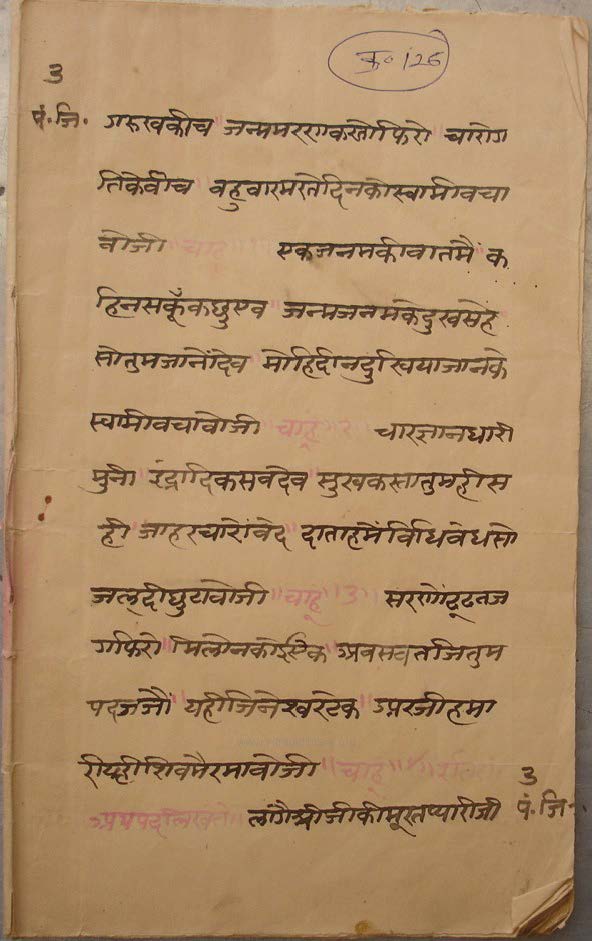 क्र॰ 126
3
पं. जि. गरूखकीच जन्ममरणकरतोफिरो चारोग
तिकेवीच वहुवारमरतेदिनकोस्वामीवचा
वोजी चाहू एकजनमकीवातमैं क
हिनसकूँकछुएव जन्मजनमकेदुखसहे
सोतुमजानोंदेव मोहिदीनदुखियाजानके
स्वामीवचावोजी चाहू चारज्ञानधारी
मुनी इंद्रादिकसवदेव सुखकरतातुमहीस
ही जाहरचारोंवेद दाताहमेंविधिवेधसो
जलदीछुटावोजी चाहू 3 सरणेंढूढतज
गफिरो मिलोनकोईटेक अवसवतजितुम
पदजजौं यहीजिनेश्वरटेक अरजीहमा
रीयहीशिवमैरमावोजी चाहू
3
लागैश्रीजीकीमूरतप्यारीजी पं. जि.